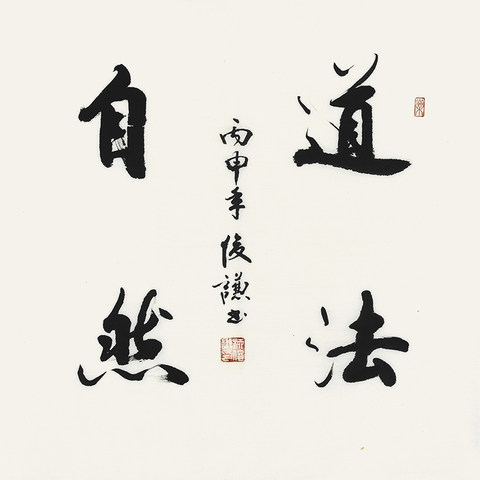 道法
自然
丙申年俊謙书